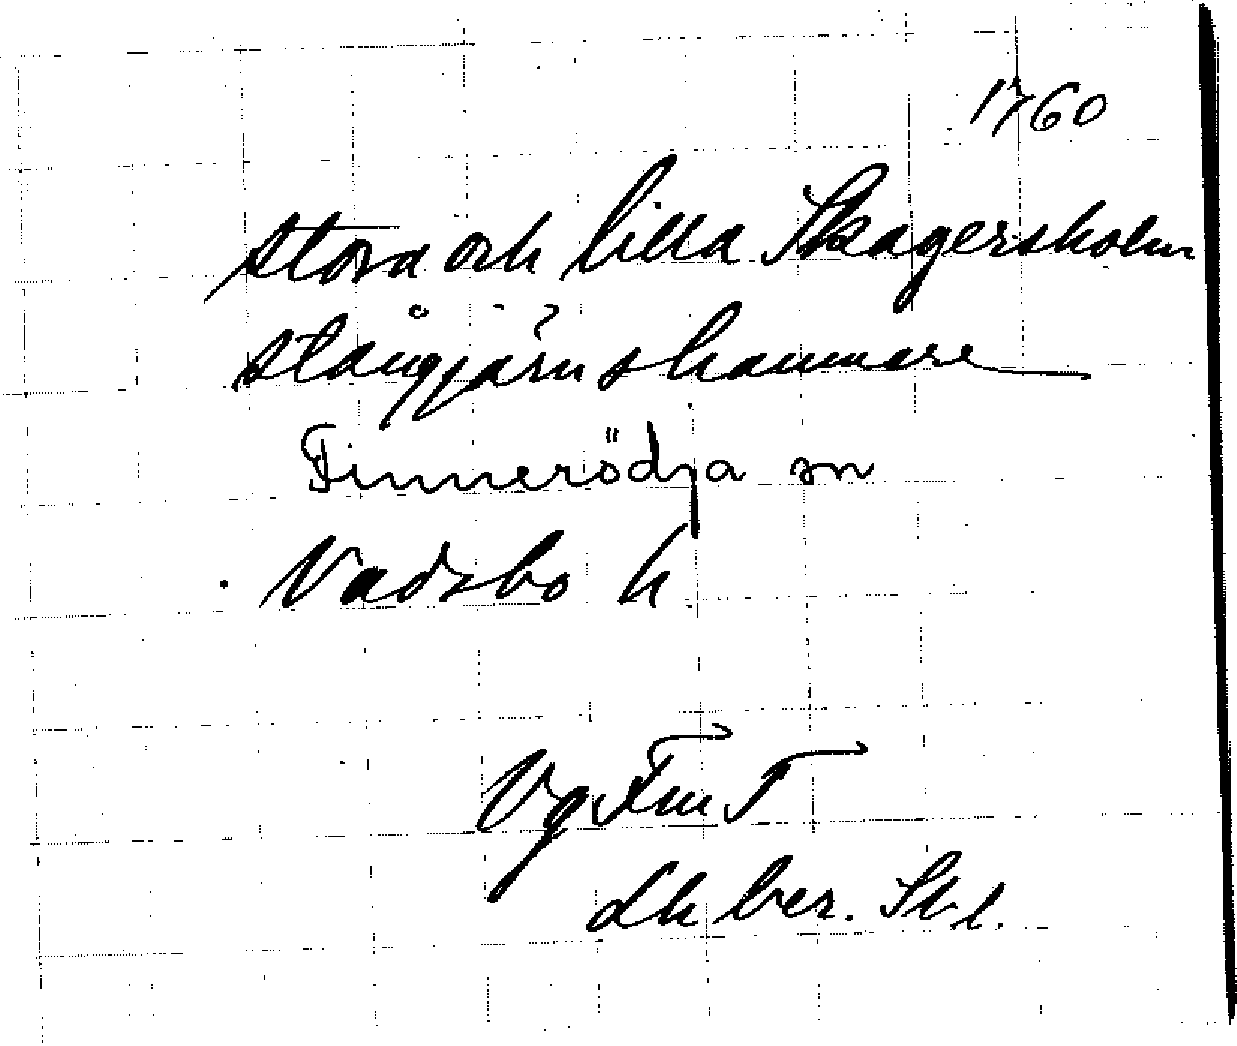 1760
Stora och lilla Skagersholm
stångjärnshammare
Finnerödja sn
Vadsbo h
Vg Fm T
Lh ber.